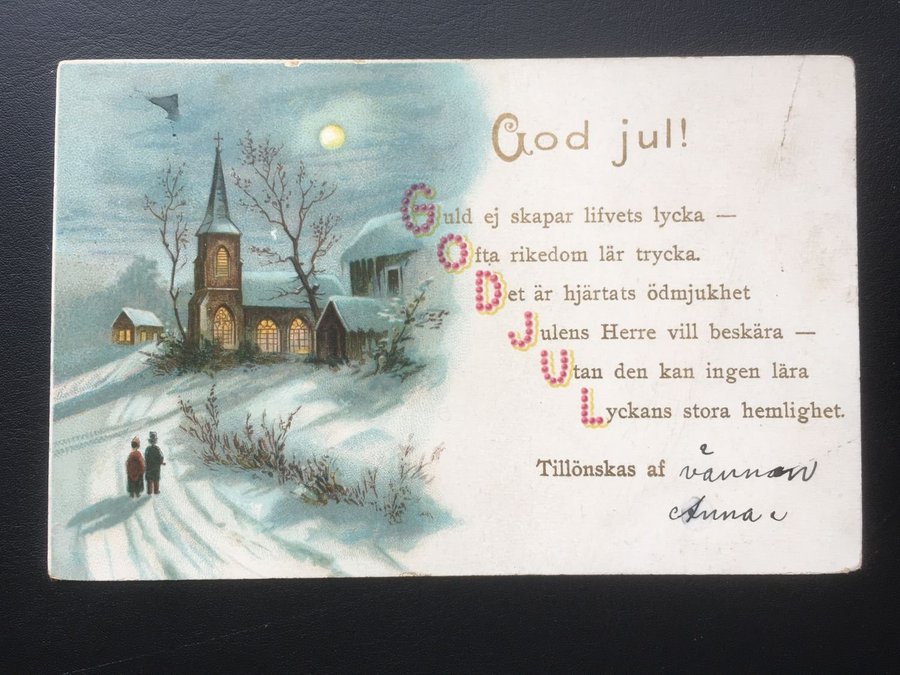 God jul!
Guld ej skapar lifvets lycka —
Ofta rikedom lär trycka.
Det är hjärtats ödmjukhet
Julens Herre vill beskära —
Utan den kan ingen lära
Lyckans stora hemlighet.
Tillönskas af vännen
Anna